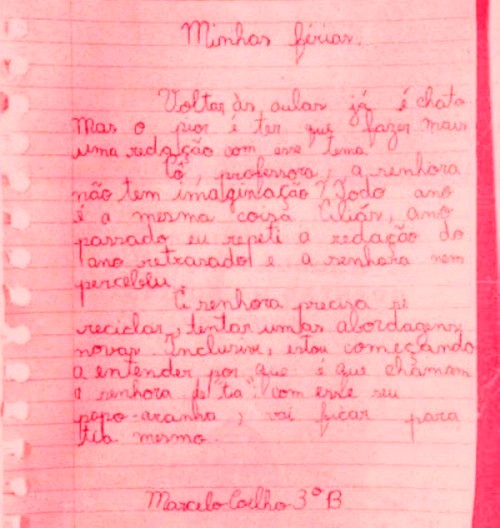 Minhas férias.
Voltar às aulas já é chato
Mas o pior é ter que fazer mais
uma redação com esse tema
Tô, professora, a senhora
não tem imaginação? Todo ano
é a mesma coisa Aliás, ano
passado eu repeti a redação do
ano retrasado e a senhora nem
percebeu.
A senhora precisa se
reciclar, tentar umas abordagens
novas. Inclusive, estou começando
a entender por que é que chamam
a senhora de "tia": com esse seu
papo-aranha, vai ficar para
tia mesmo.
Marcelo Coelho 3º B